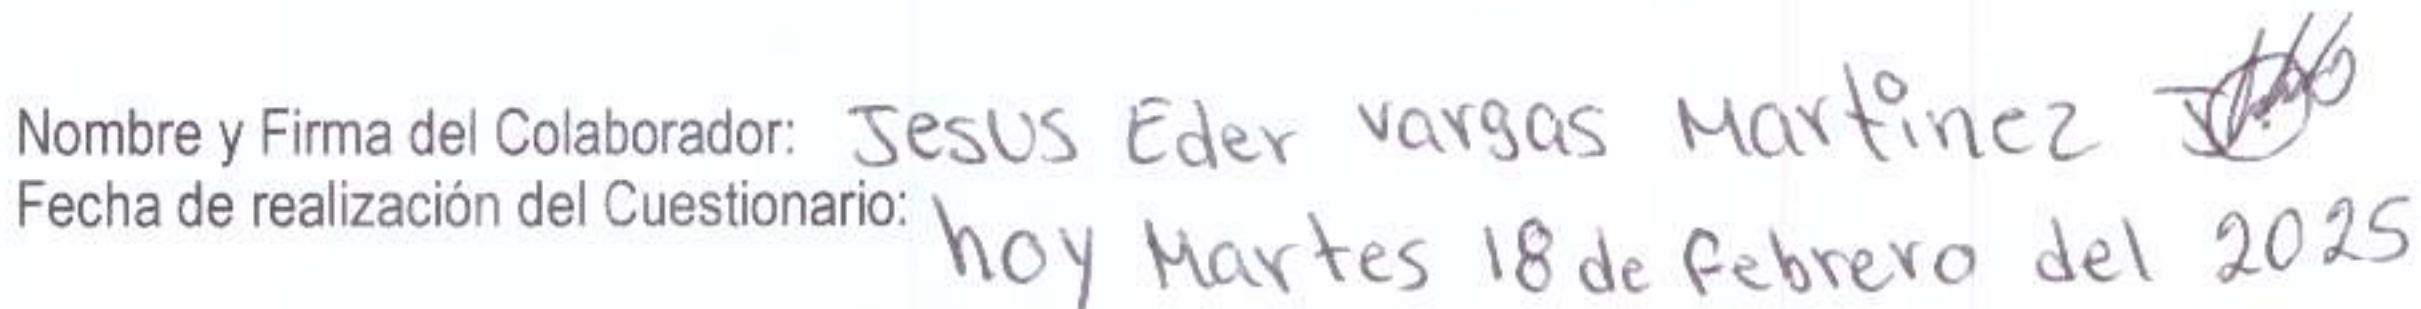 Nombre y Firma del Colaborador: Jesus Eder vargas Martinez
Fecha de realización del Cuestionario: hoy Martes 18 de febrero del 2025